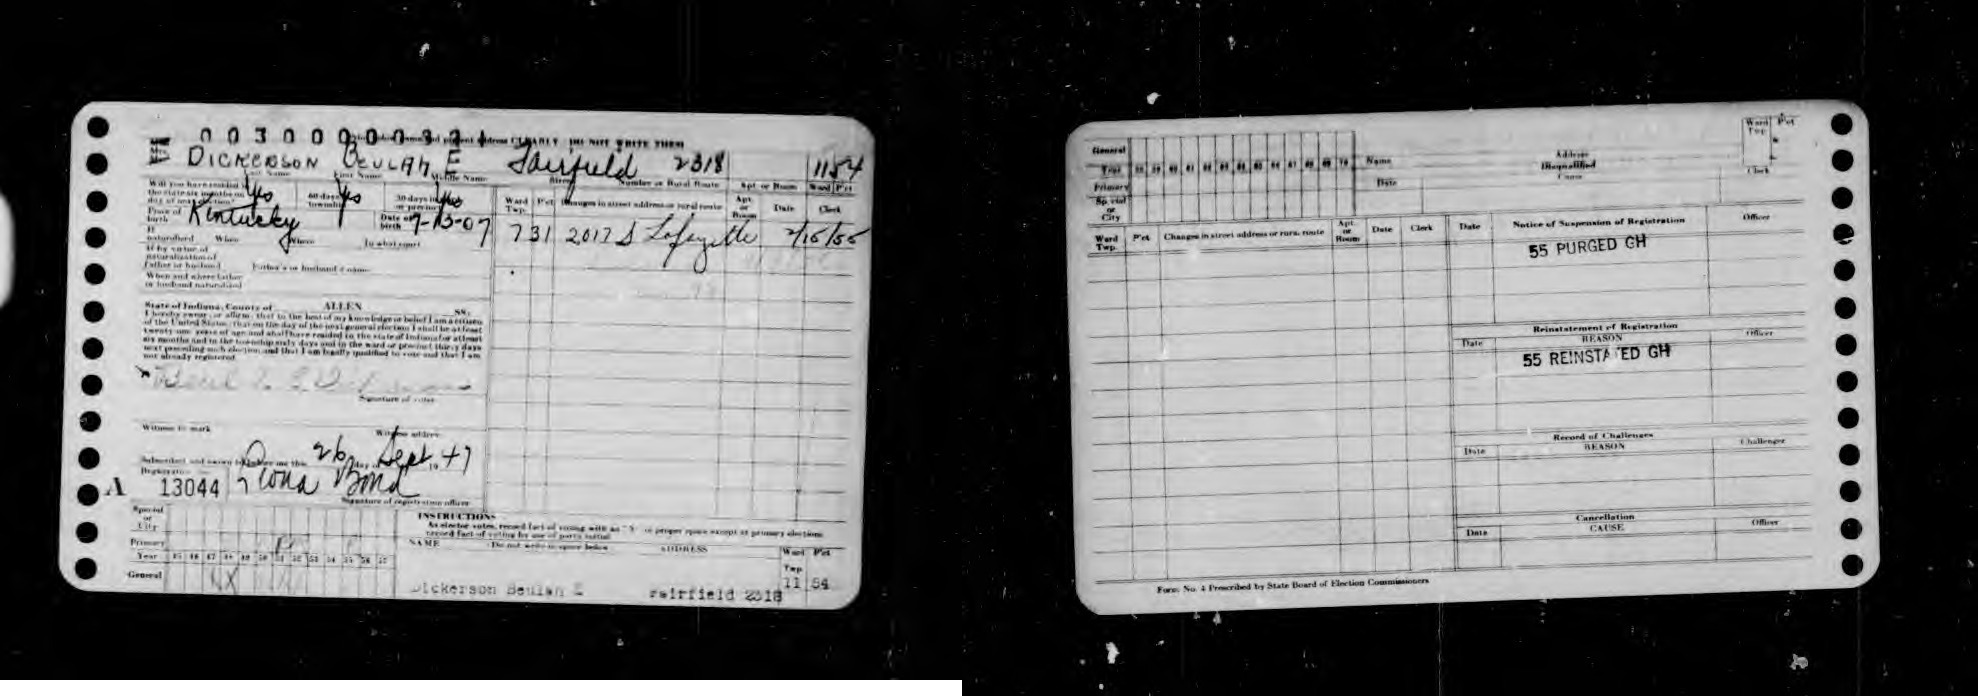 0030000032
CLEARLY DO NOT WRITE THERE
DICKERSON BEULAH E Fairfield 2318 11 54
Last Name First Name Middle Name Street Number or Rural Route Apt. or Room Ward Pct
Will you have resided in
the state six months on
day of next election? Yes 60 days in township Yes 30 days in or precinct Yes
Place of birth Kentucky Date of birth 7-13-07
If naturalized When Where In what court
If by virtue of
naturalization of
father or husband Father's or husband's name
When and where father
or husband naturalized
Ward Twp. Pct Changes in street address or rural route Apt. or Room Date Clerk
7 31 2017 S Lafayette 2/15/55
State of Indiana, County of ALLEN SS:
I hereby swear, or affirm, that to the best of my knowledge or belief I am a citizen
of the United States; that on the day of the next general election I shall be at least
twenty-one years of age and shall have resided in the state of Indiana for at least
six months and in the township sixty days and in the ward or precinct thirty days
next preceding such election, and that I am legally qualified to vote and that I am
not already registered.
Signature of voter
Witness to mark Witness address
Subscribed and sworn to before me this 26 day of Sept 19 47
Registration
A 13044 Bond
Signature of registration officer
Special
or
City
Primary
Year 45 46 47 48 49 50 51 52 53 54 55 56 57
General X
INSTRUCTIONS
As elector votes, record fact of voting with an "X" in proper space except at primary elections
record fact of voting by use of party initial.
NAME Do not write in space below ADDRESS Ward Twp. Pct
Dickerson Beulah E Fairfield 2318 11 54
General
Year 58 59 60 61 62 63 64 65 66 67 68 69 70
Primary
Special
or
City
Name Address Ward Twp. Pct
Disqualified
Date Cause Clerk
Ward Twp. Pct Changes in street address or rural route Apt. or Room Date Clerk
Date Notice of Suspension of Registration Officer
55 PURGED GH
Reinstatement of Registration
Date REASON Officer
55 REINSTATED GH
Record of Challenges
Date REASON Challenger
Cancellation
Date CAUSE Officer
Form No. 4 Prescribed by State Board of Election Commissioners